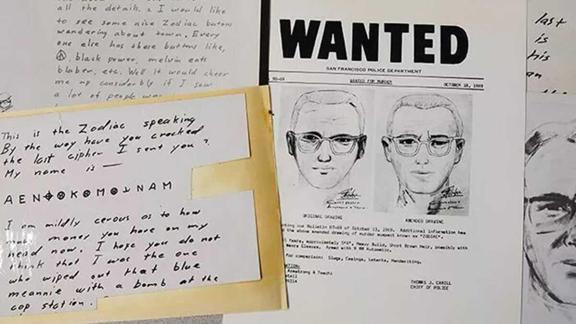 all the details. I would like
to see some nice Zodiac butons
wandering about town. Every
one else has these buttons like,
black power, melvin eats
blubber, etc. Well it would cheer
me up considerbly if I saw
a lot of people
This is the Zodiac speaking
By the way have you cracked
the last cipher I sent you?
My name is —
AEN⌖⊕K⊕M⊕⅃NAM
I am mildly cerous as to how
much money you have on my
head now. I hope you do not
think that I was the one
who wiped out that blue
meannie with a bomb at the
cop station.
WANTED
SAN FRANCISCO POLICE DEPARTMENT
WANTED FOR MURDER
OCTOBER 18, 1969
ORIGINAL DRAWING
AMENDED DRAWING
our Bulletin 87-69 of October 13, 1969. Additional information has
above amended drawing of murder suspect known as "ZODIAC".
Years, approximately 5'8", Heavy Build, Short Brown Hair, possibly with
Glasses. Armed with 9 MM Automatic.
for comparison: Slugs, Casings, Latents, Handwriting.
Armstrong & Toschi
THOMAS J. CAHILL
CHIEF OF POLICE
last
is
his
an